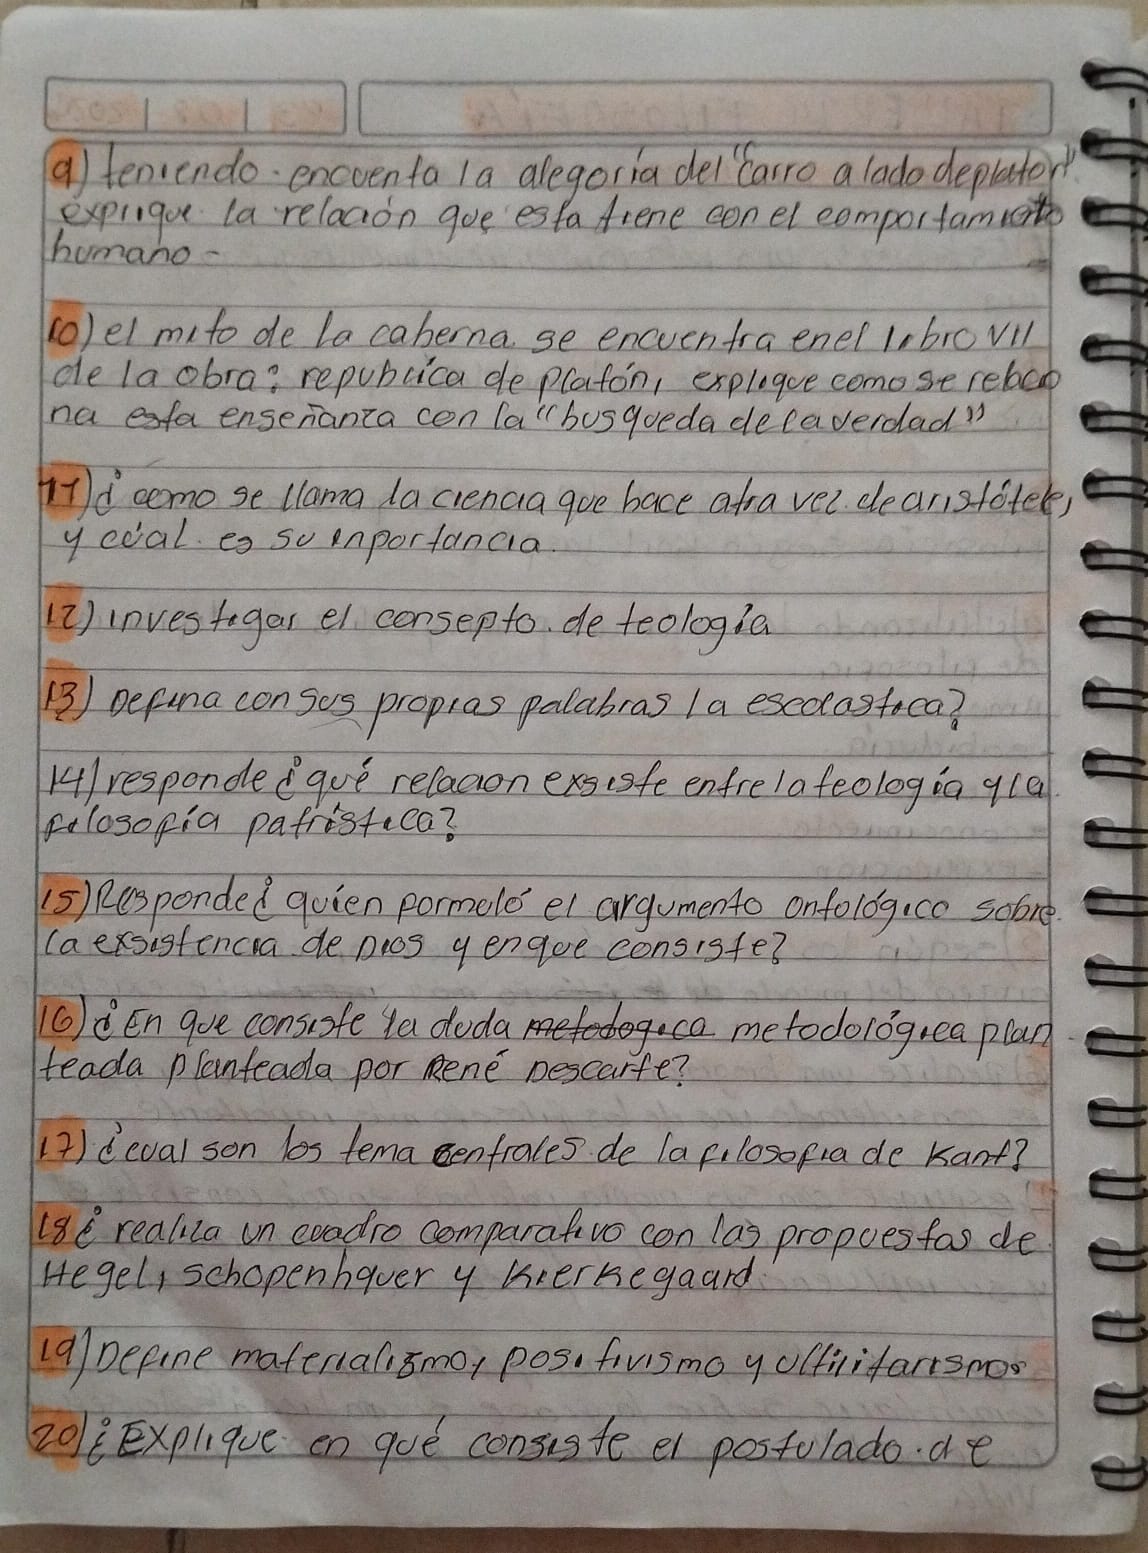 9) teniendo encuenta la alegoría del "Carro alado deplaton"
explique la relación que esta tiene con el comportamiento
humano -
10) el mito de la caberna se encuentra enel libro VII
de la obra: republica de platón, explique como se relacio
na esta enseñanza con la "busqueda de la verdad"
11) ¿como se llama la ciencia que hace atra vez de aristóteles,
y cúal es su inportancia.
12) investigar el consepto de teología
13) Defina con sus propias palabras la escolastica?
14) responde ¿qué relacion exsiste entre la teología y la
filosofía patrística?
15) Responde ¿ quien formuló el argumento ontológico sobre
la exsistencia de Dios y enque consiste?
16) ¿En que consiste la duda metodogica metodológica plan
teada planteada por René Descarte?
17) ¿cual son los tema centrales de la filosofia de Kant?
18 ¿ realiza un cuadro comparativo con las propuestas de
Hegel, schopenhauer y Kierkegaard.
19) Define materialismo, positivismo y ultilitarismo.
20) ¿Explique en qué consiste el postulado de